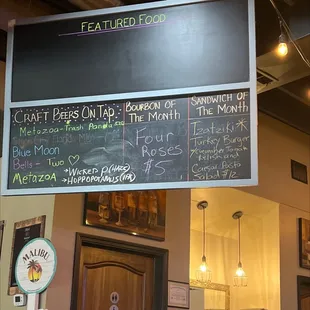 FEATURED FOOD
CRAFT BEERS ON TAP
Metazoa - Trash Panda
Blue Moon
Bells - Two
Metazoa
Wicked
HOPPOPOTAMUS (IPA)
BOURBON OF
THE MONTH
Four
Roses
$5
SANDWICH OF
THE MONTH
Tzatziki
Turkey Burger
w/
Caprial Pasta
Salad $12
MALIBU